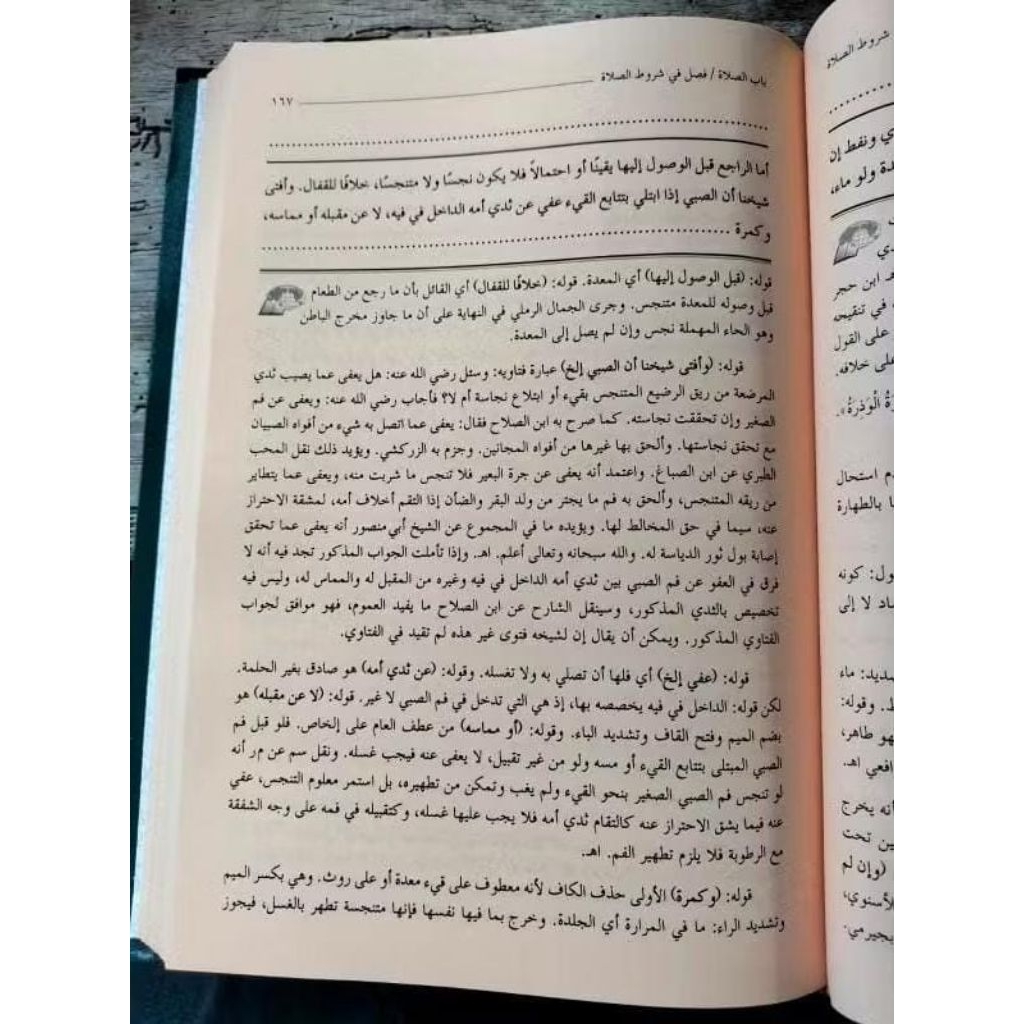 باب الصلاة / فصل في شروط الصلاة
١٦٧
أما الراجع قبل الوصول إليها يقينًا أو احتمالاً فلا يكون نجسًا ولا متنجسًا، خلافًا للقفال. وأفتى
شيخنا أن الصبي إذا ابتلي بتتابع القيء عفي عن ثدي أمه الداخل في فيه، لا عن مقبله أو مماسه،
وكمرة
قوله: (قبل الوصول إليها) أي المعدة. قوله: (خلافًا للقفال) أي القائل بأن ما رجع من الطعام
قبل وصوله للمعدة متنجس. وجرى الجمال الرملي في النهاية على أن ما جاوز مخرج الباطن
وهو الحاء المهملة نجس وإن لم يصل إلى المعدة.
قوله: (وأفتى شيخنا أن الصبي إلخ) عبارة فتاويه: وسئل رضي الله عنه: هل يعفى عما يصيب ثدي
المرضعة من ريق الرضيع المتنجس بقيء أو ابتلاع نجاسة أم لا؟ فأجاب رضي الله عنه: ويعفى عن فم
الصغير وإن تحققت نجاسته. كما صرح به ابن الصلاح فقال: يعفى عما اتصل به شيء من أفواه الصبيان
مع تحقق نجاستها. وألحق بها غيرها من أفواه المجانين. وجزم به الزركشي. ويؤيد ذلك نقل المحب
الطبري عن ابن الصباغ. واعتمد أنه يعفى عن جرة البعير فلا تنجس ما شربت منه، ويعفى عما يتطاير
من ريقه المتنجس، وألحق به فم ما يجتر من ولد البقر والضأن إذا التقم أخلاف أمه، لمشقة الاحتراز
عنه، سيما في حق المخالط لها. ويؤيده ما في المجموع عن الشيخ أبي منصور أنه يعفى عما تحقق
إصابة بول ثور الدياسة له. والله سبحانه وتعالى أعلم. اهـ. وإذا تأملت الجواب المذكور تجد فيه أنه لا
فرق في العفو عن فم الصبي بين ثدي أمه الداخل في فيه وغيره من المقبل له والمماس له، وليس فيه
تخصيص بالثدي المذكور، وسينقل الشارح عن ابن الصلاح ما يفيد العموم، فهو موافق لجواب
الفتاوي المذكور. ويمكن أن يقال إن لشيخه فتوى غير هذه لم تقيد في الفتاوي.
قوله: (عفي إلخ) أي فلها أن تصلي به ولا تغسله. وقوله: (عن ثدي أمه) هو صادق بغير الحلمة.
لكن قوله: الداخل في فيه يخصصه بها، إذ هي التي تدخل في فم الصبي لا غير. قوله: (لا عن مقبله) هو
بضم الميم وفتح القاف وتشديد الباء. وقوله: (أو مماسه) من عطف العام على إلخاص. فلو قبل فم
الصبي المبتلى بتتابع القيء أو مسه ولو من غير تقبيل، لا يعفى عنه فيجب غسله. ونقل سم عن م‌ر أنه
لو تنجس فم الصبي الصغير بنحو القيء ولم يغب وتمكن من تطهيره، بل استمر معلوم التنجس، عفي
عنه فيما يشق الاحتراز عنه كالتقام ثدي أمه فلا يجب عليها غسله، وكتقبيله في فمه على وجه الشفقة
مع الرطوبة فلا يلزم تطهير الفم. اهـ.
قوله: (وكمرة) الأولى حذف الكاف لأنه معطوف على قيء معدة أو على روث. وهي بكسر الميم
وتشديد الراء: ما في المرارة أي الجلدة. وخرج بما فيها نفسها فإنها متنجسة تطهر بالغسل، فيجوز
شروط الصلاة
ي ونفط إن
دة ولو ماء،
دي
هـ ابن حجر
ه في تنقيحه
على القول
على خلافه.
رَةُ الْوَذِرَةُ».
م استحال
ا بالطهارة
ول: كونه
ساد لا إلى
سديد: ماء
ط. وقوله:
هو طاهر،
افعي اهـ.
أنه يخرج
ين تحت
(وإن لم
لأسنوي،
بجيرمي.